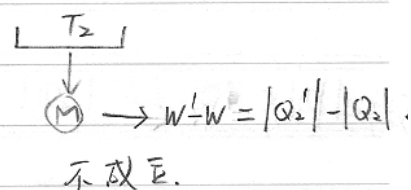 T₂
M → W'-W = |Q₂'| - |Q₂|.
不成立.